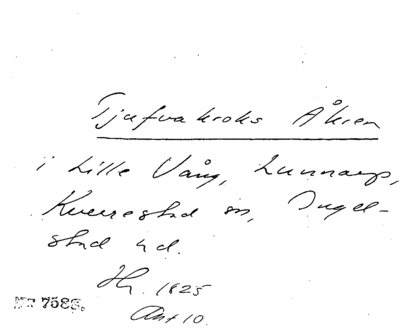 Tjufvakroks Åkren
i Lille Vång, Lunnarp,
Kverrestad sn, Ingel-
stad hd.
Hr. 1825
Akt 10.
7586.